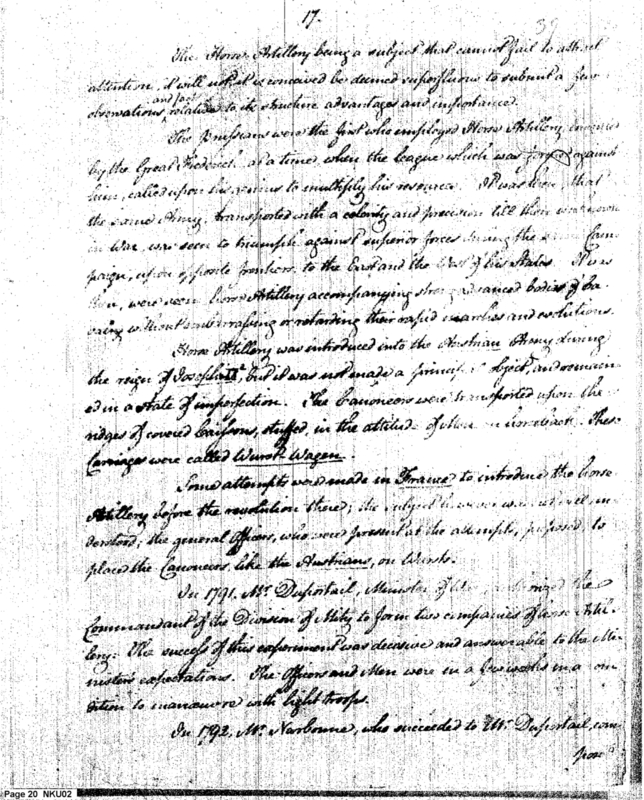 17.
39
The Horse Artillery being a subject that cannot fail to attract
attention, it will not it is conceived be deemed superfluous to submit a few
and fact
observations, relative to its structure advantages and importance.
The Prussians were the first who employed Horse Artillery,
by the Great Frederick, at a time, when the league which was formed against
him, called upon his genius to multiply his resource. It was then, that
the same Army, transported with a celerity and precision till then unknown
in War, was seen to triumph against superior forces during the same Cam-
paign, upon opposite frontiers, to the East and the West of his States. It was
then, were seen horse Artillery accompanying strong advanced bodies of Ca-
valry without embarrassing or retarding their rapid marches and evolutions.
Horse Artillery was introduced into the Austrian Army during
the reign of Joseph IId, but it was not made a principal object, and remain-
ed in a state of imperfection. The Canoneers were transported upon the
ridges of covered Caissons, stuffed, in the attitude of Men on horseback. These
Carriages were called Wurst-Wagen.
Some attempts were made in France to introduce the horse
Artillery before the revolution there; the subject however was not well un-
derstood, the general Officers, who were present at the attempts, proposed, to
place the Canoneers, like the Austrians, on Wursts.
In 1791, Mr. Duportail, Minister of War, authorized the
Commandant of the Division of Mity to form two companies of horse Artil-
lery. The success of this experiment was decisive and answerable to the Mi-
nisters expectations. The Officers and Men were in a few weeks in a con-
dition to manœuvre with light troops.
In 1792, Mr. Narbonne, who succeeded to Mr. Duportail, com-
Page 20 NKU02